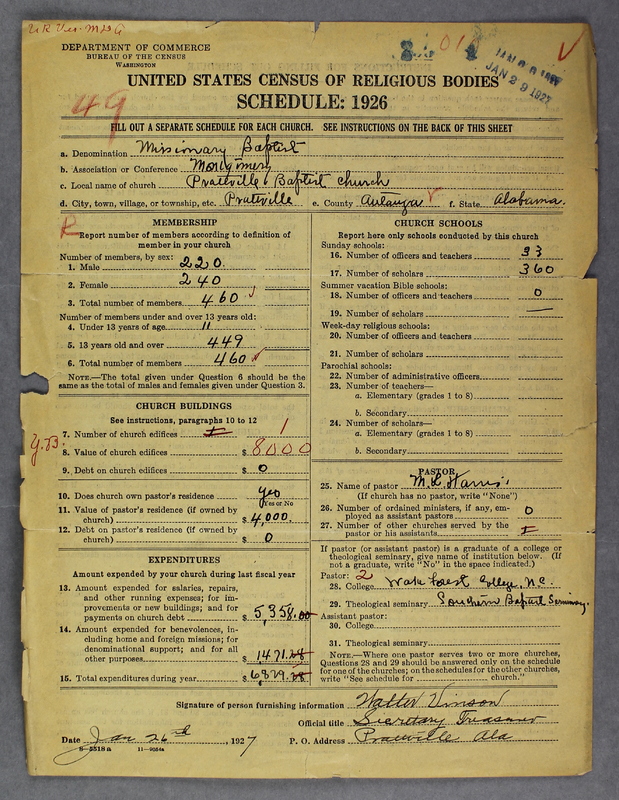 DEPARTMENT OF COMMERCE
BUREAU OF THE CENSUS
WASHINGTON
JAN 29 1927
UNITED STATES CENSUS OF RELIGIOUS BODIES
SCHEDULE: 1926
49
FILL OUT A SEPARATE SCHEDULE FOR EACH CHURCH. SEE INSTRUCTIONS ON THE BACK OF THIS SHEET
a. Denomination Missionary Baptist
b. Association or Conference Montgomery
c. Local name of church Prattville Baptist church
d. City, town, village, or township, etc. Prattville e. County Autauga f. State Alabama.
MEMBERSHIP
Report number of members according to definition of
member in your church
Number of members, by sex:
1. Male 220
2. Female 240
3. Total number of members 460
Number of members under and over 13 years old:
4. Under 13 years of age 11
5. 13 years old and over 449
6. Total number of members 460
NOTE.—The total given under Question 6 should be the
same as the total of males and females given under Question 3.
CHURCH BUILDINGS
See instructions, paragraphs 10 to 12
7. Number of church edifices 1
8. Value of church edifices $ 8000
9. Debt on church edifices $ 0
10. Does church own pastor's residence yes
Yes or No
11. Value of pastor's residence (if owned by
church) $ 4,000.
12. Debt on pastor's residence (if owned by
church) $ 0
EXPENDITURES
Amount expended by your church during last fiscal year
13. Amount expended for salaries, repairs,
and other running expenses; for im-
provements or new buildings; and for
payments on church debt $ 5,358.00
14. Amount expended for benevolences, in-
cluding home and foreign missions; for
denominational support; and for all
other purposes 1,471.28
15. Total expenditures during year $ 6,829.28
CHURCH SCHOOLS
Report here only schools conducted by this church
Sunday schools:
16. Number of officers and teachers 33
17. Number of scholars 360
Summer vacation Bible schools:
18. Number of officers and teachers 0
19. Number of scholars —
Week-day religious schools:
20. Number of officers and teachers
21. Number of scholars
Parochial schools:
22. Number of administrative officers
23. Number of teachers—
a. Elementary (grades 1 to 8)
b. Secondary
24. Number of scholars—
a. Elementary (grades 1 to 8)
b. Secondary
PASTOR
25. Name of pastor M. L. Harris
(If church has no pastor, write "None")
26. Number of ordained ministers, if any, em-
ployed as assistant pastors 0
27. Number of other churches served by the
pastor or his assistants
If pastor (or assistant pastor) is a graduate of a college or
theological seminary, give name of institution below. (If
not a graduate, write "No" in the space indicated.)
Pastor: 2
28. College Wake Forest College, N.C.
29. Theological seminary Southern Baptist Seminary.
Assistant pastor:
30. College
31. Theological seminary
NOTE.—Where one pastor serves two or more churches,
Questions 28 and 29 should be answered only on the schedule
for one of the churches; on the schedules for the other churches,
write "See schedule for church."
Signature of person furnishing information Walter Vinson
Official title Secretary Treasurer
Date Jan 26th, 1927 P. O. Address Prattville Ala
8-5518a 11-9054a